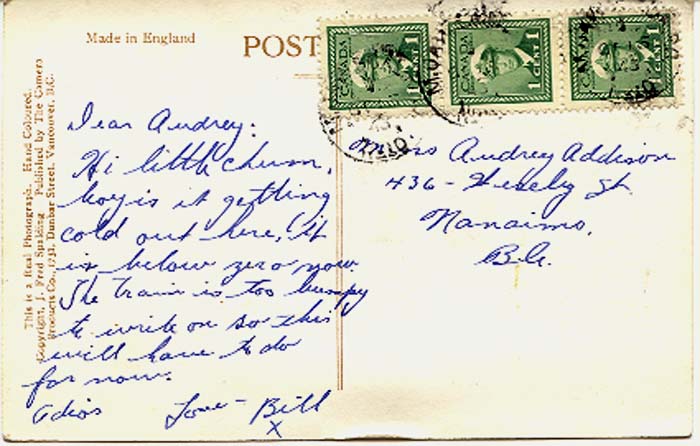 Made in England
POST
CANADA
1 CENT 1
CANADA
1 CENT 1
CANADA
1 CENT 1
This is a Real Photograph. Hand Coloured.
Copyright, J. Fred Spalding Published by The Camera
Products Co., 1731, Dunbar Street, Vancouver, B.C.
Dear Audrey:
Hi little chum,
boy is it getting
cold out here, it
is below zero now.
The train is too bumpy
to write on so this
will have to do
for now.
Adios Love - Bill
X
Miss Audrey Addison
436 - Wesely St.
Nanaimo,
B.C.